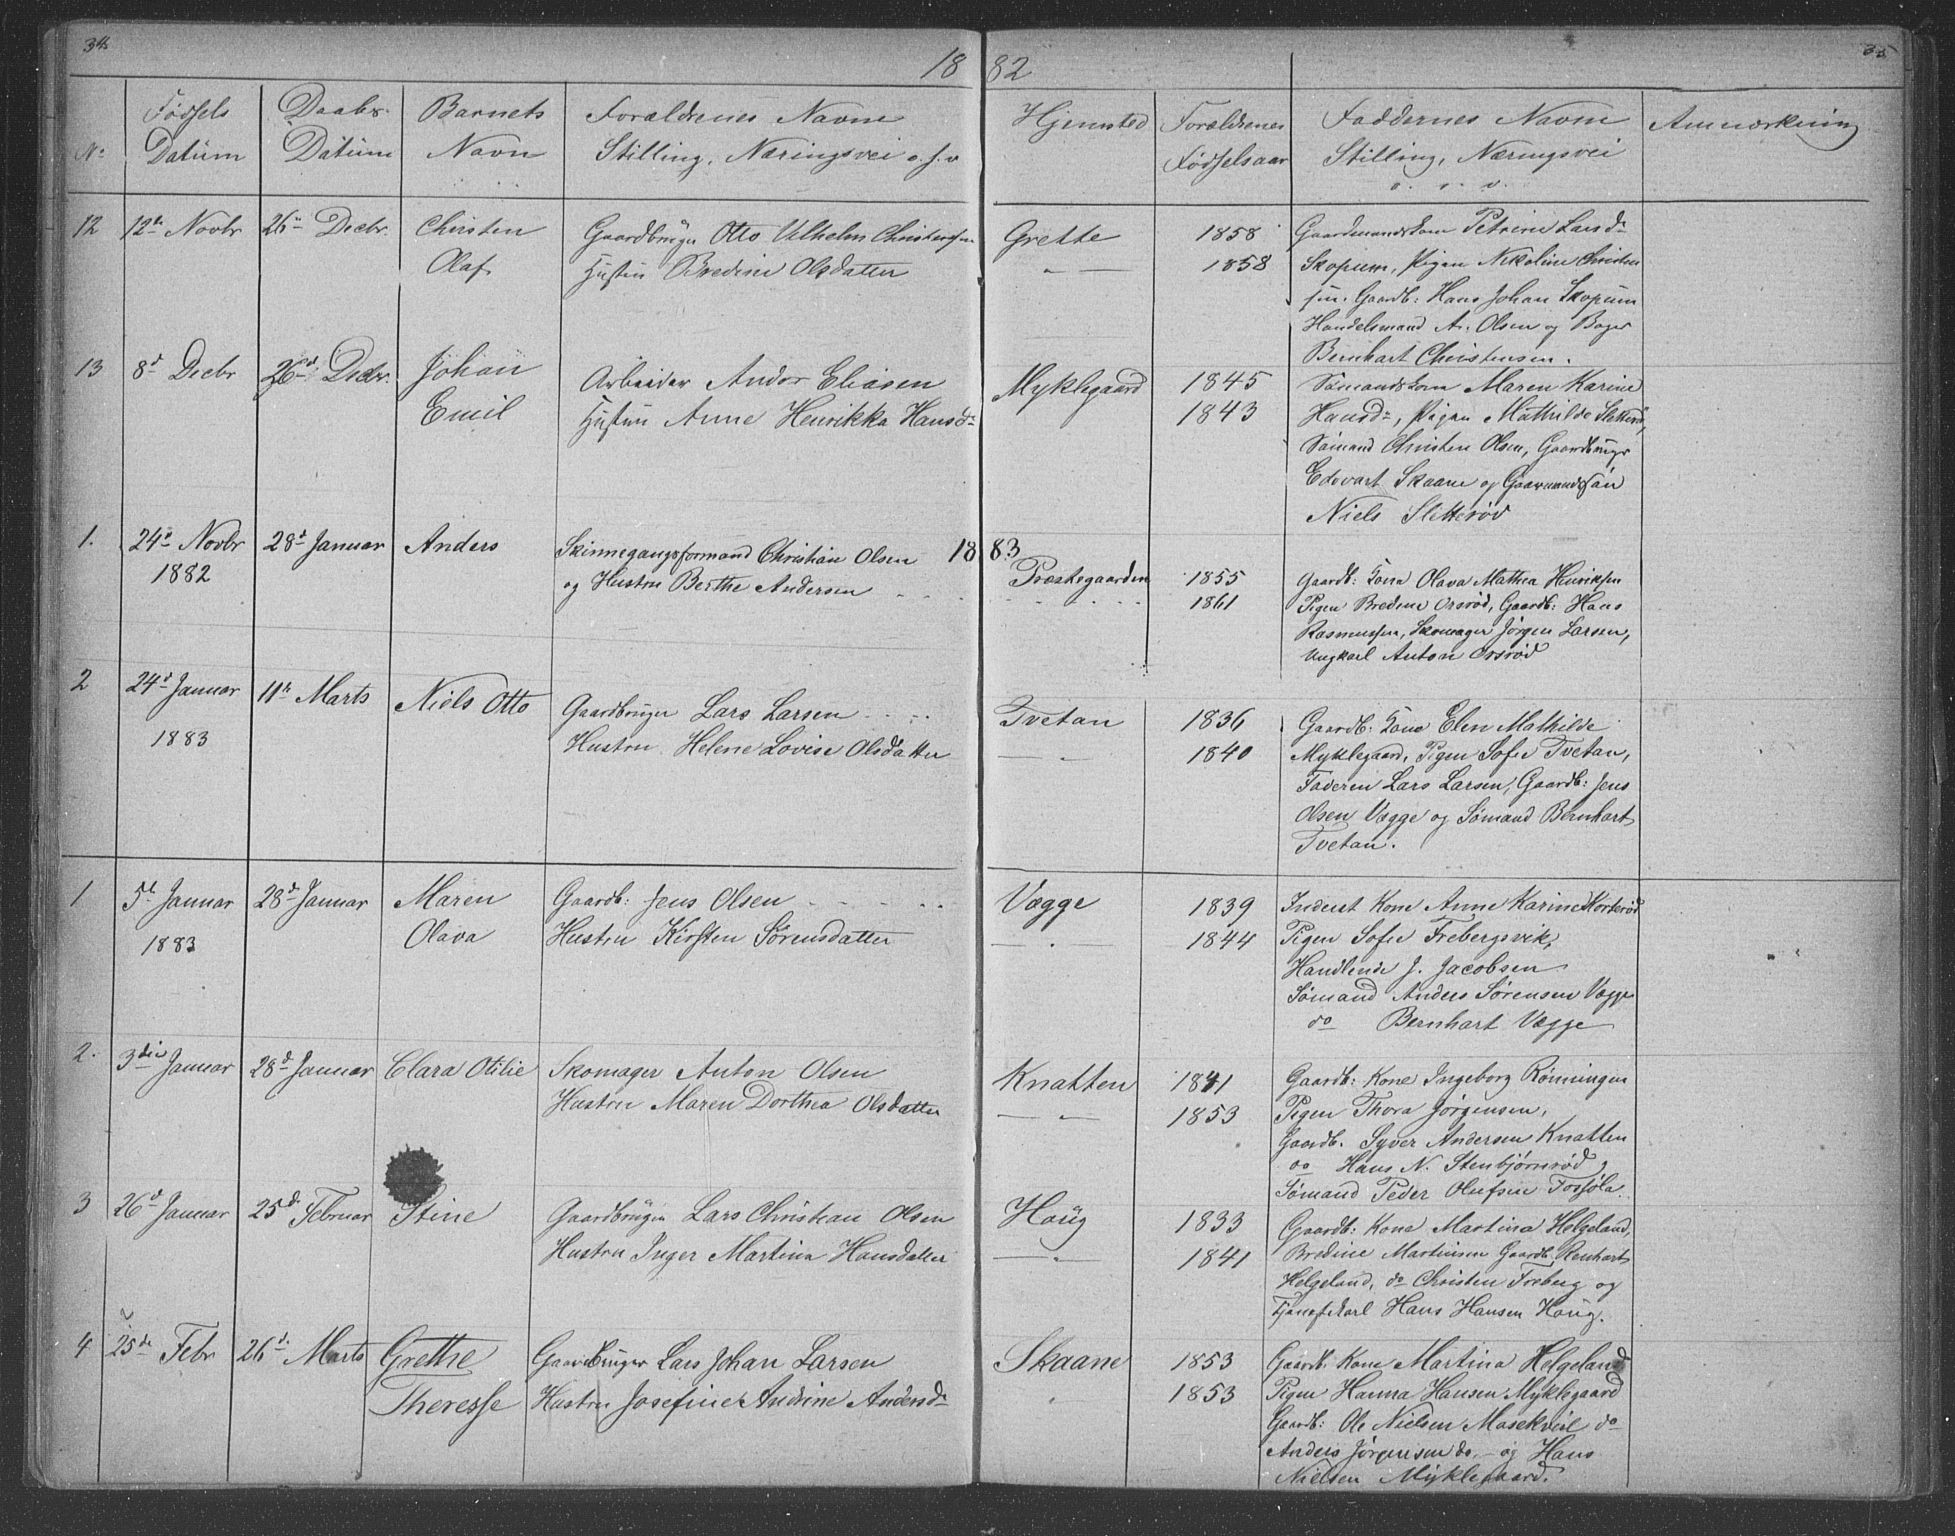 34
35
18 82
No
Fødsels Datum
Daabs Datum
Barnets Navn
Forældrenes Navne
Stilling, Næringsvei o. s. v
Hjemsted
Forældrenes Fødselsaar
Faddernes Navne
Stilling, Næringsvei
o. s. v.
Anmærkning
12 12te Novbr 26de Decbr. Christen Olaf
Gaardbruger Otto Vilhelm Christensen
Hustru Bredine Olsdatter
Grette 1858
1858
Gaardmandskone Petrine Larsd.
Skopum, Pigen Nikoline Christen
sen. Gaardb: Hans Johan Skopum
Handelsmand A. Olsen og Bager
Bernhart Christensen.
13 8de Decbr 26de Decbr. Johan Emil
Arbeider Andor Eliasen
Hustru Anne Henrikka Hansd.
Myklegaard 1845
1843
Sømandskone Maren Karine
Hansd., Pigen Mathilde Sletterød,
Sømand Christen Olsen, Gaardbruger
Edevart Skaane og Gaarmandssøn
Niels Sletterød
18 83
1. 24de Novbr 1882 28de Januar Anders
Skinnegangsformand Christian Olsen
og Hustru Berthe Andersen
Præstegaarden 1855
1861
Gaardb: Kona Olava Mathea Henriksen
Pigen Bredine Orsrød, Gaardb: Hans
Rasmussen, Skomager Jørgen Larsen,
Ungkarl Anton Orsrød
2 24de Januar 1883 11te Marts Niels Otto
Gaardbruger Lars Larsen
Hustru Helene Lovise Olsdatter
Tvetan 1836
1840
Gaardb: Kone Elen Mathilde
Myklegaard, Pigen Sofie Tvetan,
Faderen Lars Larsen, Gaardb: Jens
Olsen Vægge og Sømand Bernhart
Tvetan.
1 5te Januar 1883 28de Januar Maren Olava
Gaardb: Jens Olsen
Hustru Kirsten Sørensdatter
Vægge 1839
1844
Inderst Kone Anne Karine Korterød
Pigen Sofie Frebergsvik,
Handlende J. Jacobsen
Sømand Anders Sørensen Vægge
do Bernhart Vægge
2. 3die Januar 28de Januar Clara Otilie
Skomager Anton Olsen
Hustru Maren Dorthea Olsdatter
Knatten 1841
1853
Gaardb: Kone Ingeborg Rønningen
Pigen Thora Jørgensen,
Gaardb. Syver Andersen Knatten
do Hans N. Stenbjørnrød,
Sømand Peder Olufsen Fossøla.
3 26de Januar 25de Februar Stine
Gaardbruger Lars Christian Olsen
Hustru Inger Martina Hansdatter
Houg 1833
1841
Gaardb: Kone Martina Helgeland,
Bredine Martinsen Gaardb. Renhart
Helgeland, do Christen Freberg og
Tjenestekarl Hans Hansen Houg.
4 25de Febr 26de Marts Grethe Theresse
Gaardbruger Lars Johan Larsen
Hustru Josefine Andrine Andersd.
Skaane 1853
1853
Gaardb: Kone Martina Helgeland
Pigen Hanna Hansen Myklegaard
Gaardb: Ole Nielsen Masekvil do
Anders Jørgensen do, og Hans
Nielsen Myklegaard.